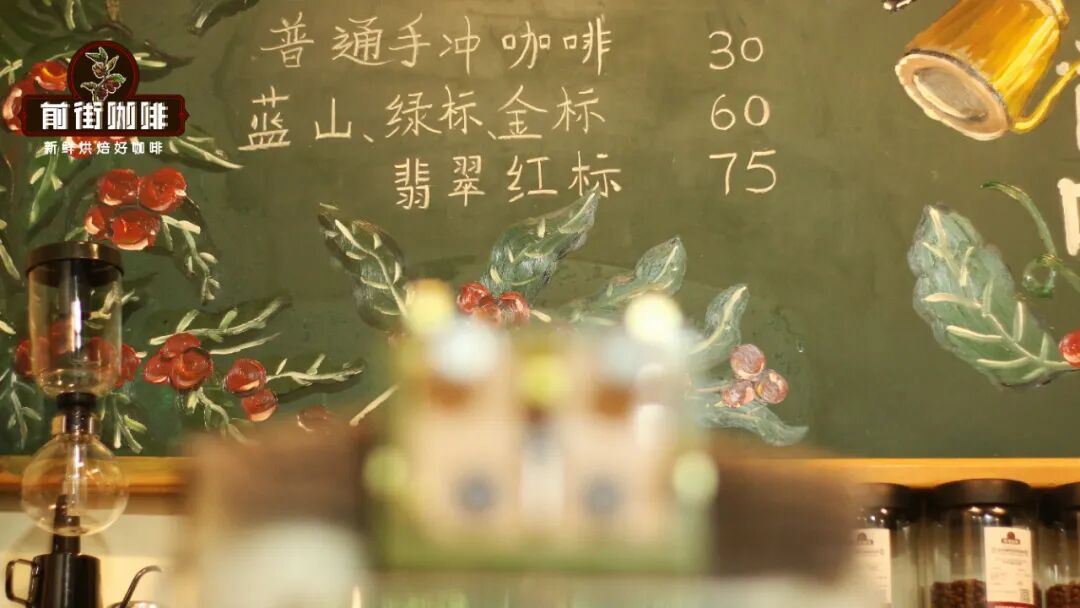 普通手冲咖啡 30
蓝山、绿标、金标 60
翡翠红标 75
前街咖啡
新鲜烘焙好咖啡